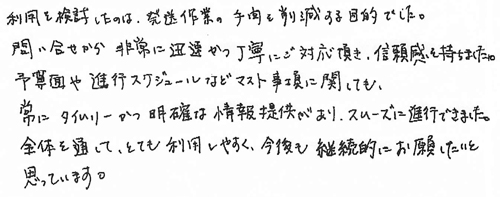 利用を検討したのは、発送作業の手間を削減する目的でした。
問い合せから非常に迅速かつ丁寧にご対応頂き、信頼感を持ちました。
予算面や進行スケジュールなどマスト事項に関しても、
常にタイムリーかつ明確な情報提供があり、スムーズに進行できました。
全体を通して、とても利用しやすく、今後も継続的にお願したいと
思っています。